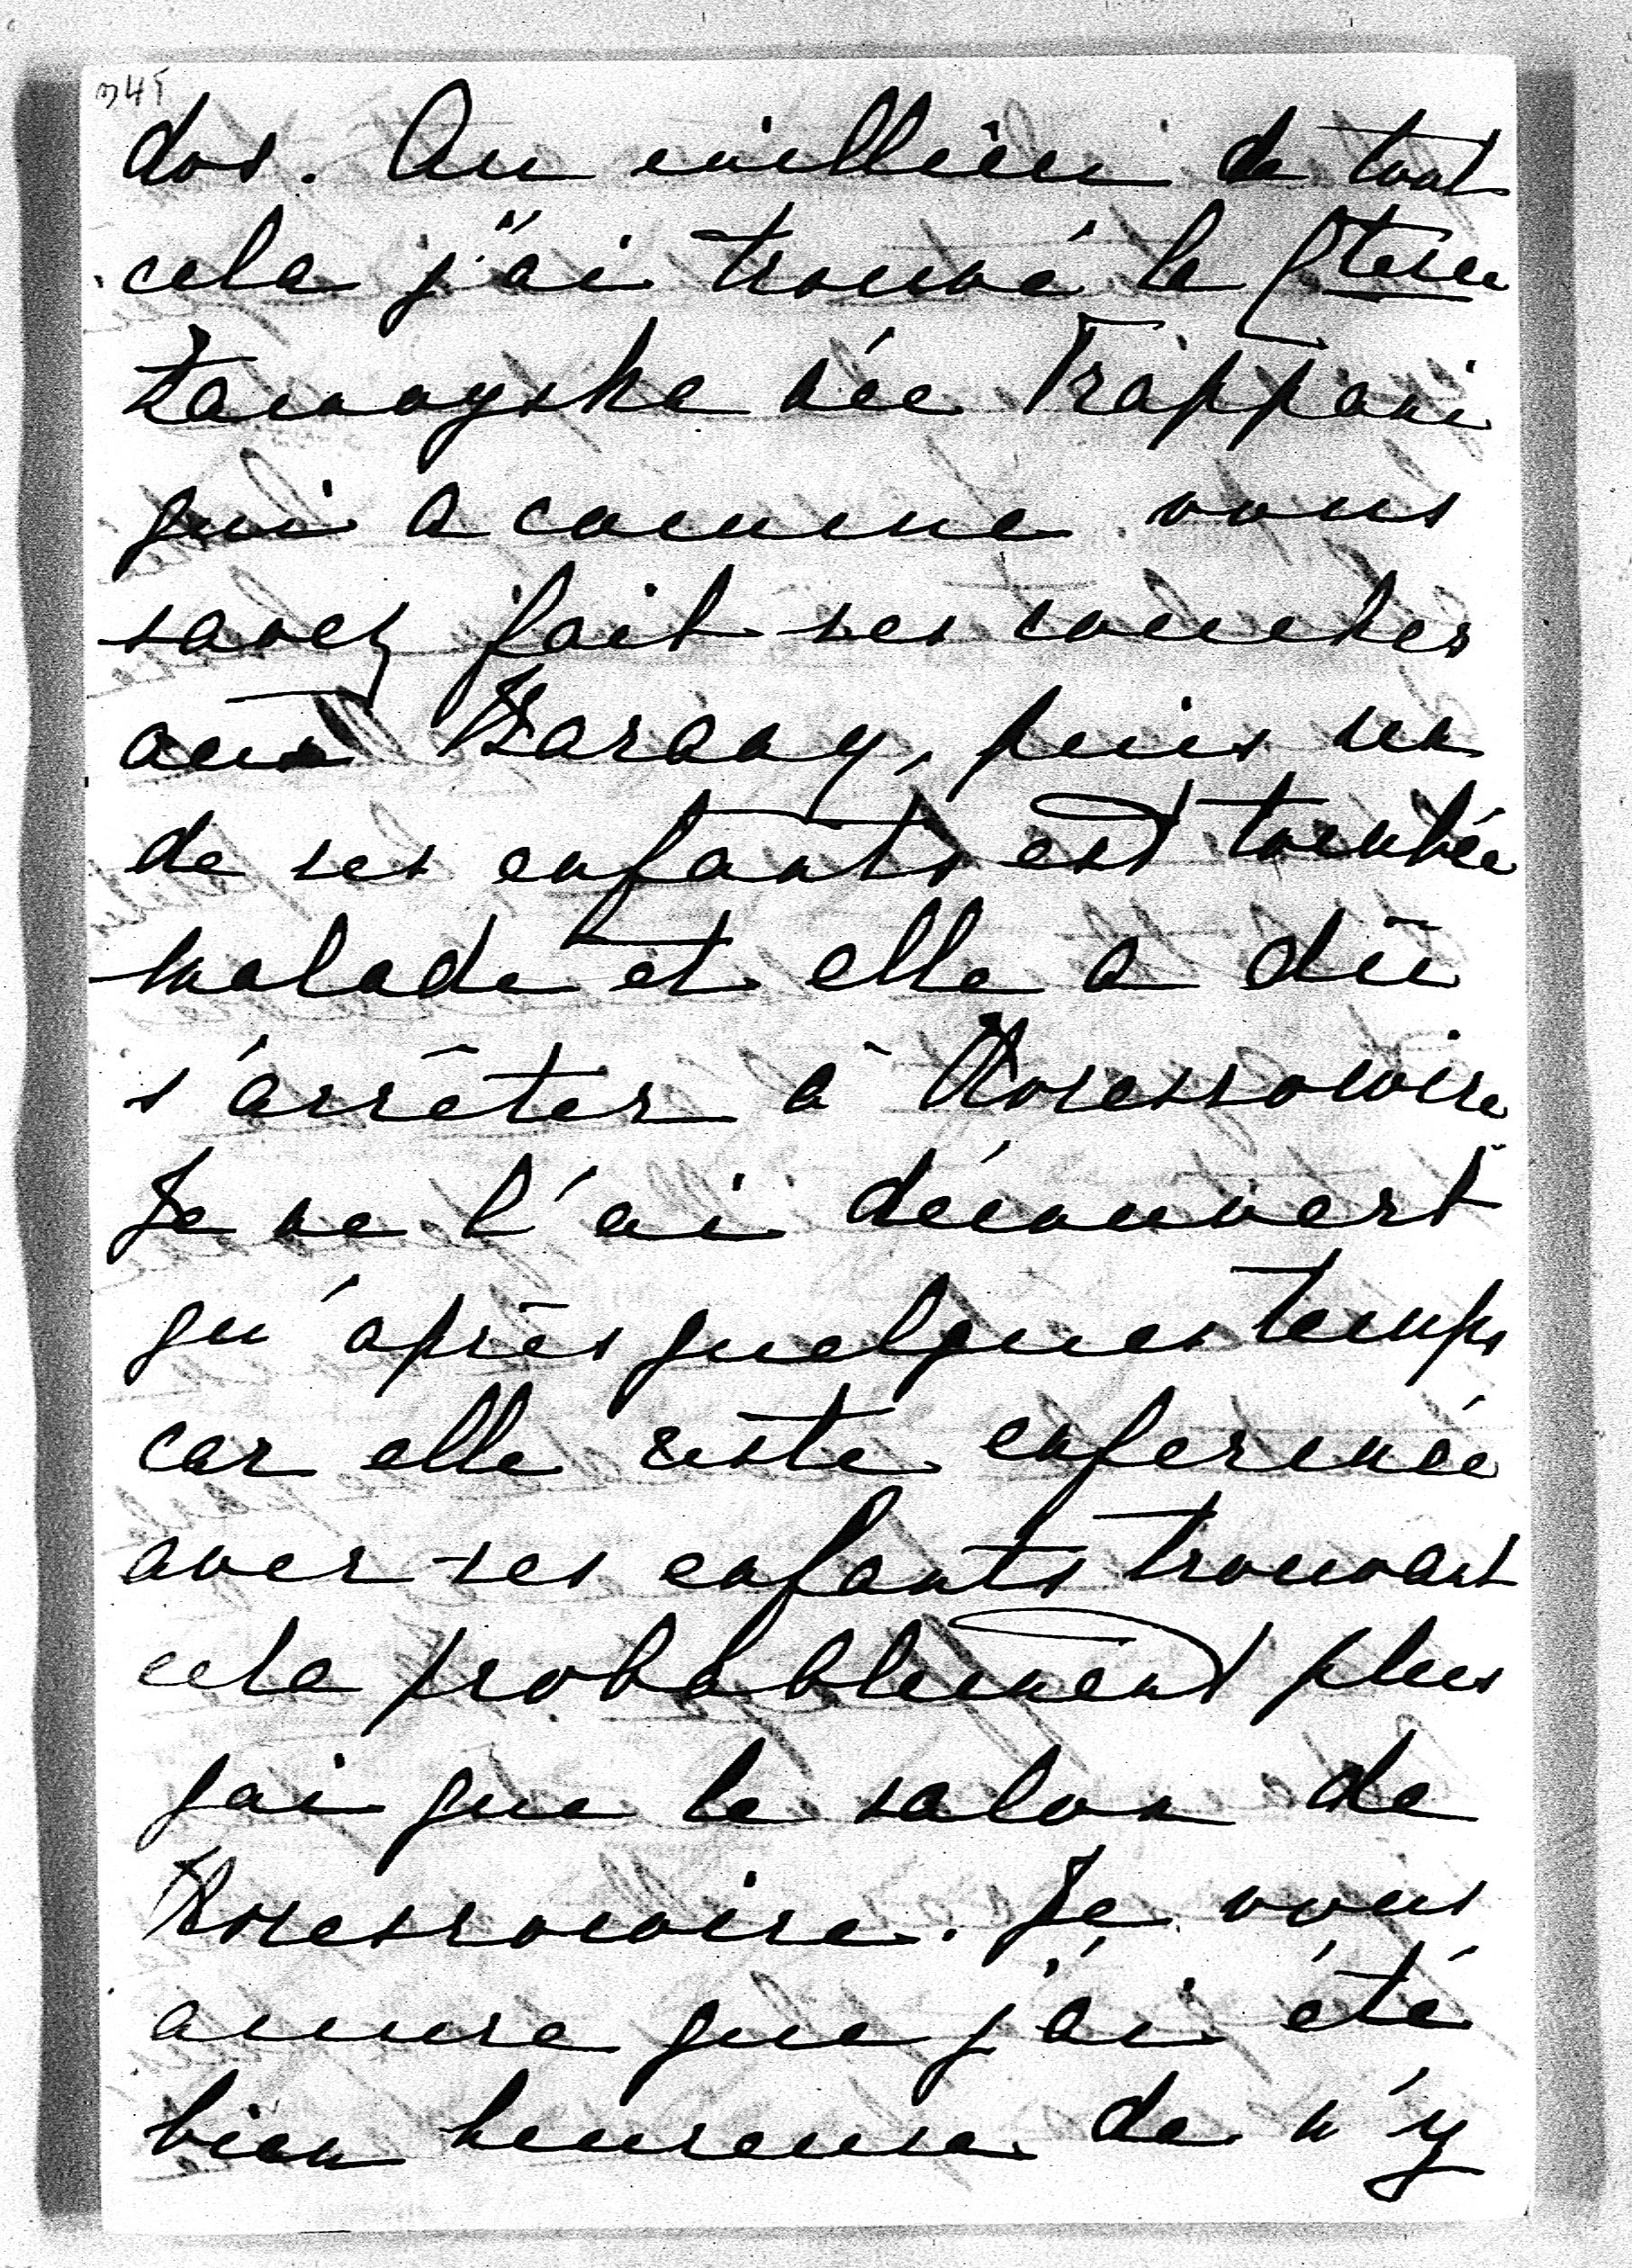 345
dos. Au millieu de tout
cela j'ai trouvé la Ctesse
Zamoyska née Trappani
qui a comme vous
savez fait ses couches
aux Barany, puis un
de ses enfants est tombée
malade et elle a dû
s'arrêter à
Je ne l'ai découvert
qu'après quelques temps
car elle reste enfermée
avec ses enfants trouvant
cela probablement plus
gai que le salon de
Je vous
assure que j'ai été
bien heureuse de n'y